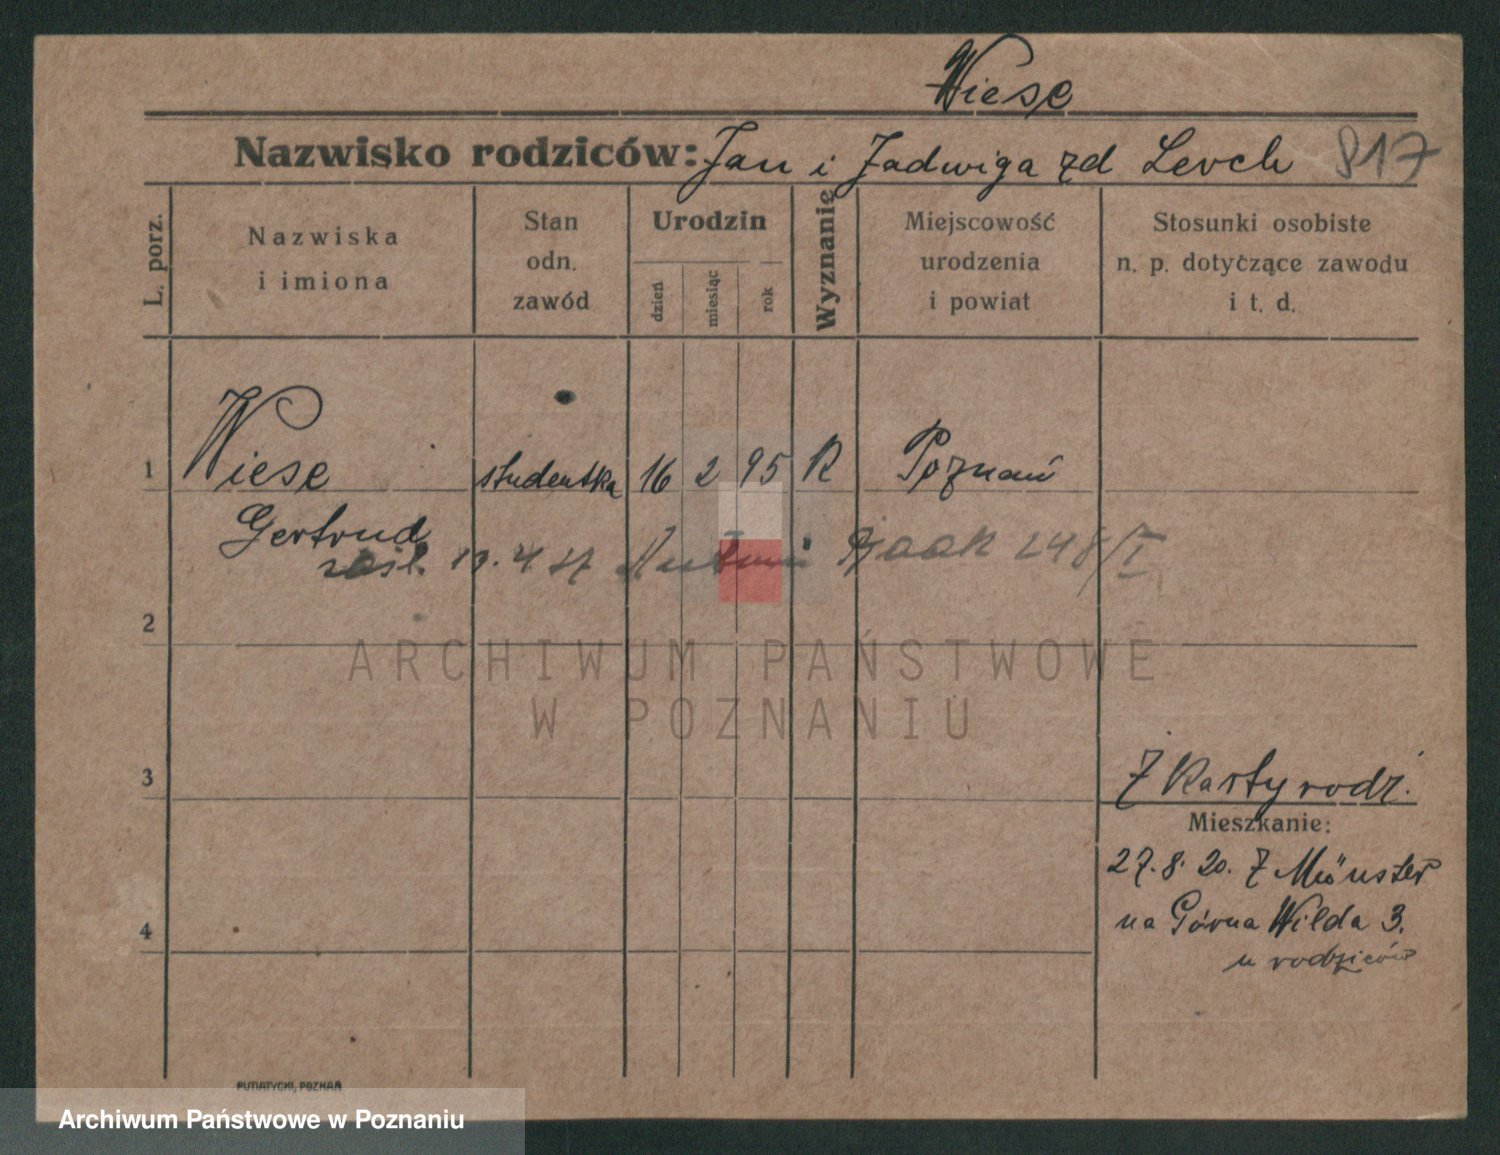 Wiese
Nazwisko rodziców: Jan i Jadwiga zd Lerch 817
L. porz.
Nazwiska
i imiona
Stan
odn.
zawód
Urodzin
dzień
miesiąc
rok
Wyznanie
Miejscowość
urodzenia
i powiat
Stosunki osobiste
n. p. dotyczące zawodu
i t. d.
1 Wiese studentka 16 2 95 R Poznań
Gertrud
2
ARCHIWUM PAŃSTWOWE
W POZNANIU
3
Z Karty rodz.
Mieszkanie:
27.8.20. Z Münster
na Górna Wilda 3.
u rodziców
4
PUTIATYCKI, POZNAŃ
Archiwum Państwowe w Poznaniu